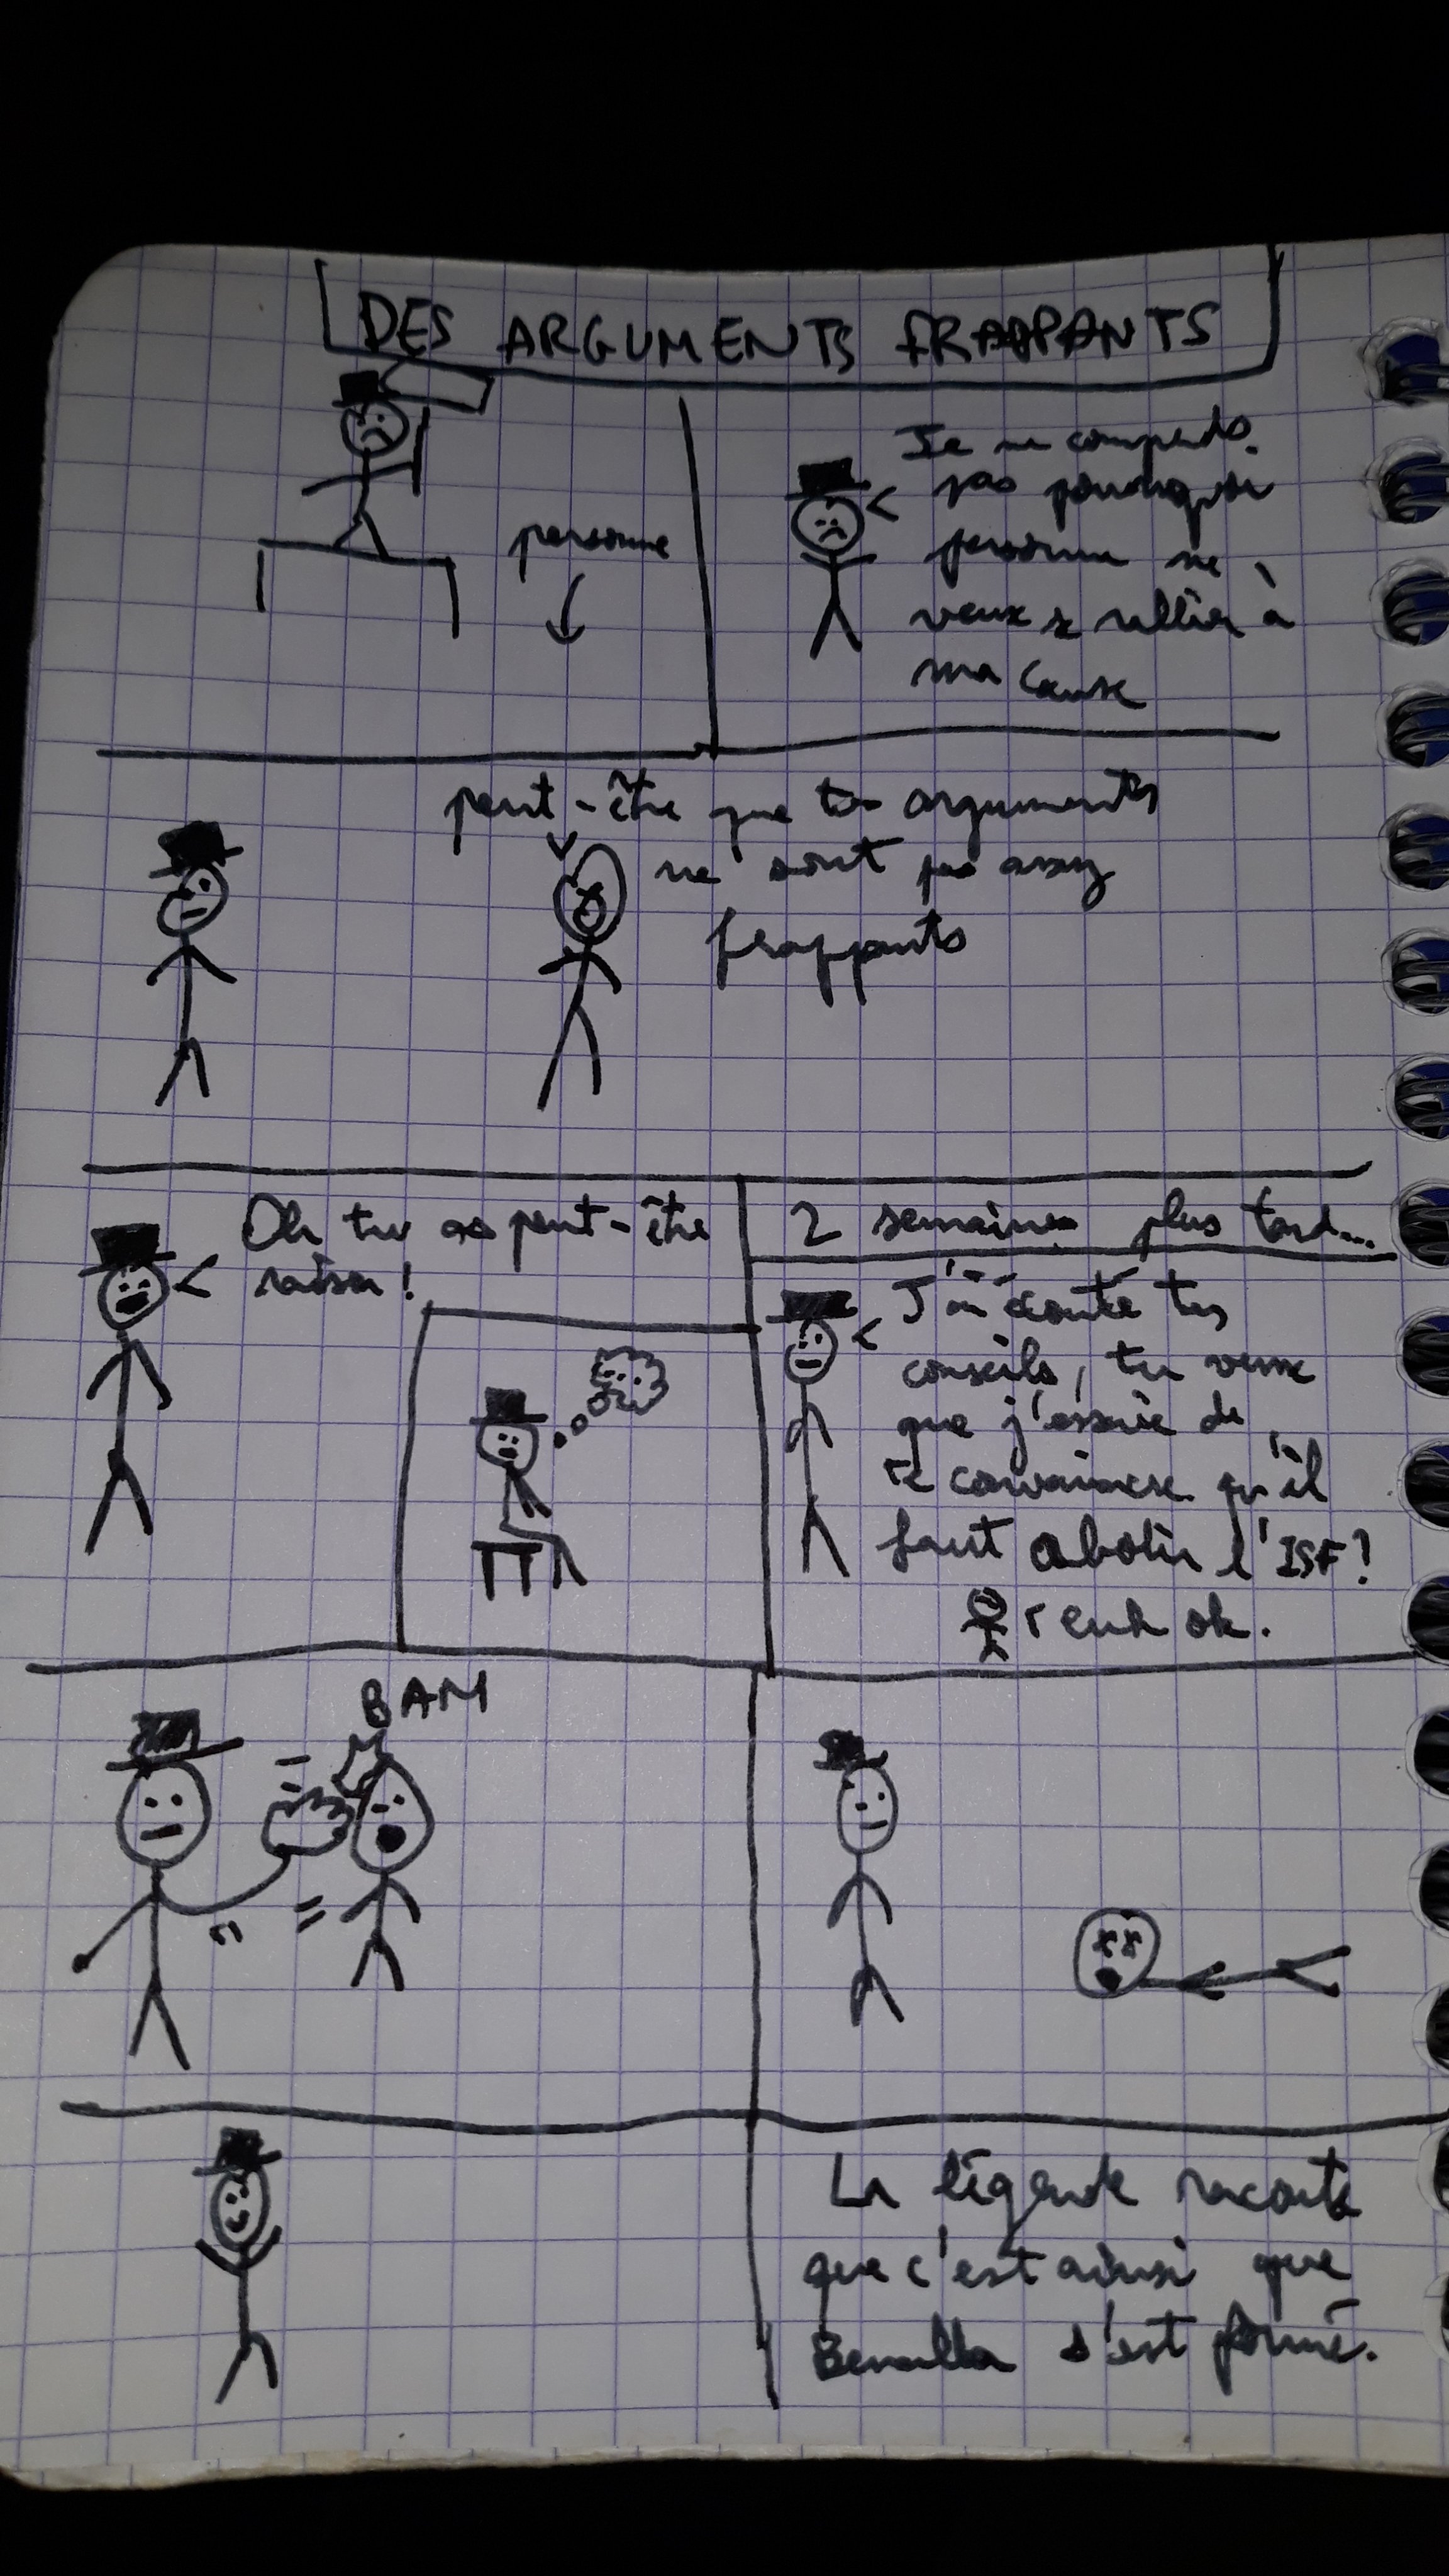 DES ARGUMENTS FRAPPANTS
personne
Je ne comprends
pas pourquoi
personne ne
veux se rallier à
ma cause
peut-être que tes arguments
ne sont pas assez
frappants
Oh tu as peut-être
raison !
2 semaines plus tard...
J'ai écouté tes
conseils, tu veux
que j'essaie de
te convaincre qu'il
faut abolir l'ISF?
euh ok.
BAM
La légende raconte
que c'est ainsi que
Benalla s'est formé.